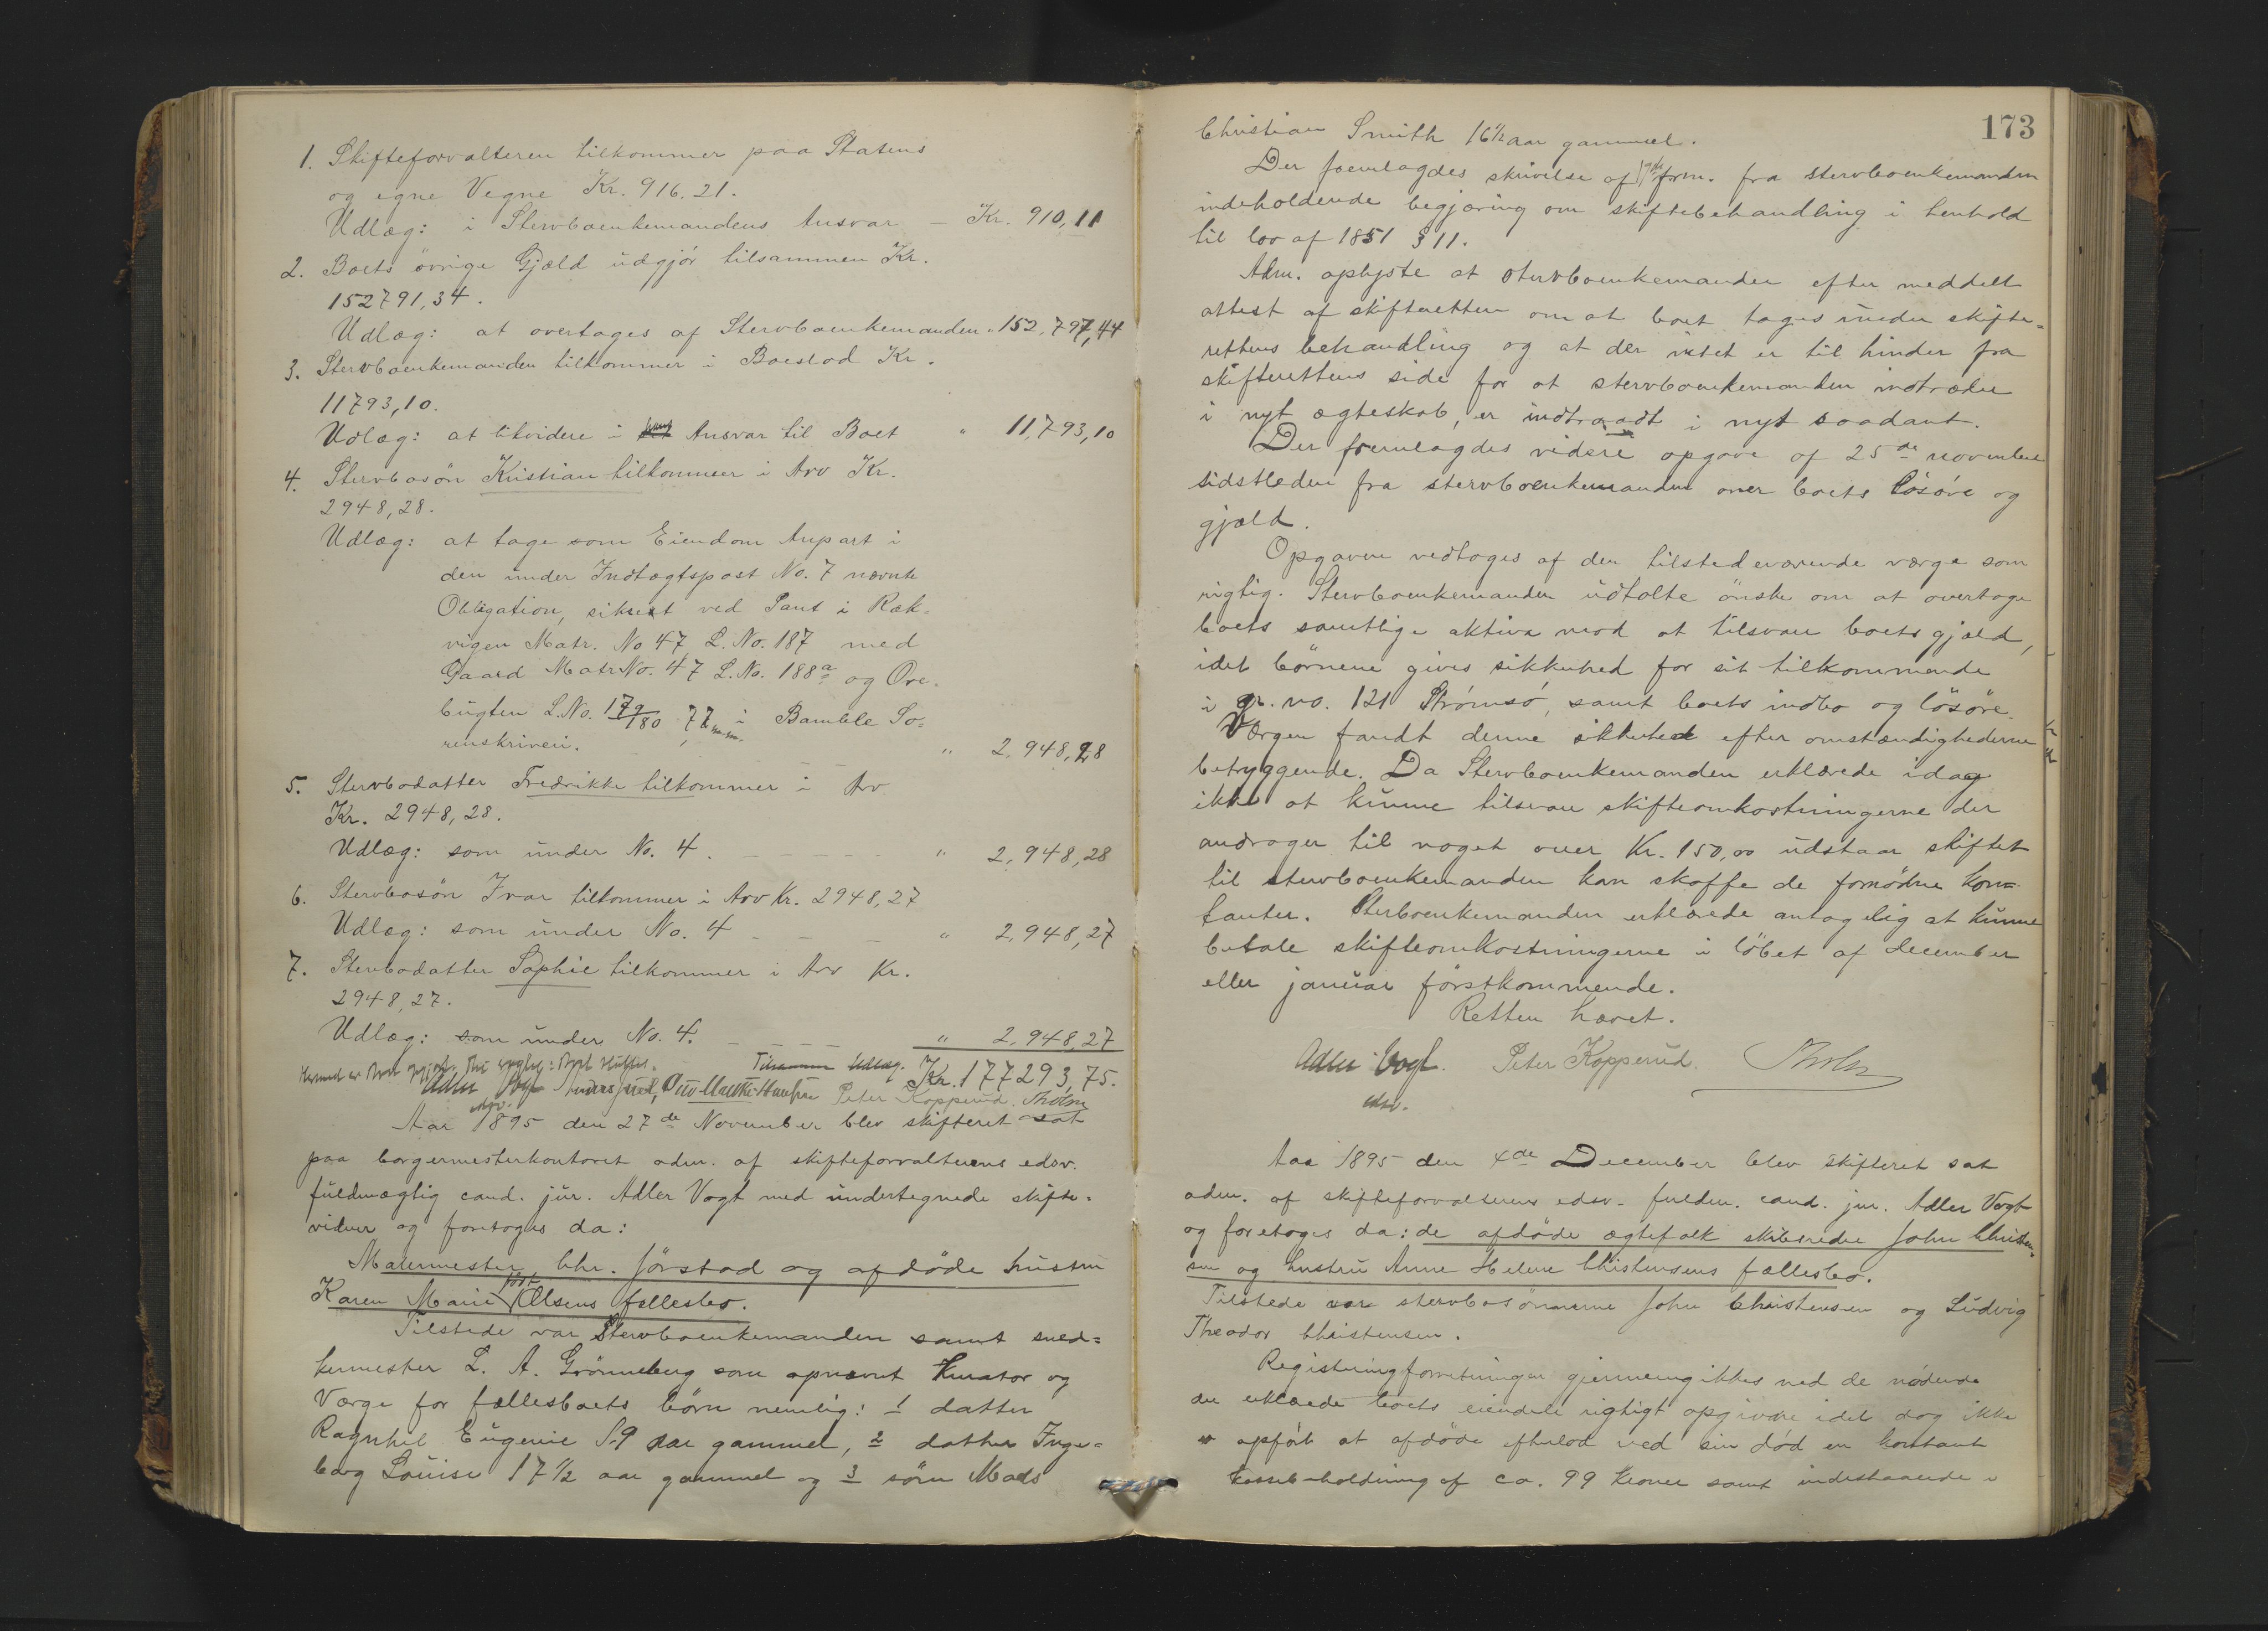 1. Skifteforvalteren tilkommer paa Statens
og egne Vegne Kr. 916.21.
Udlæg: i Stervboenkemandens Ansvar — Kr. 910,11
2. Boets övrige Gjæld udgjör tilsammen Kr.
152791,34.
Udlæg: at overtages af Stervboenkemanden " 152,797,44
3. Stervboenkemanden tilkommer i Boeslod Kr.
11793,10.
Udlæg: at likvidere i Ansvar til Boet " 11,793,10
4. Stervbosön Kristian tilkommer i Arv Kr.
2948,28.
Udlæg: at tage som Eiendom Anpart i
den under Indtægtspost No. 7 nævnte
Obligation, sikret ved Pant i Ræk-
vigen Matr. No 47 L. No. 187 med
Gaard Matr No. 47 L. No. 188a og Ore-
bugten L. No. 179/180 77 m.m. i Bamble So-
renskriveri. " 2,948,28
5. Stervbodatter Fredrikke tilkommer i Arv
Kr. 2948,28.
Udlæg: som under No. 4. — — — — " 2,948,28
6. Stervbosön Ivar tilkommer i Arv Kr. 2948,27
Udlæg: som under No. 4 — — — " 2,948,27
7. Stervbodatter Sophie tilkommer i Arv Kr.
2948,27.
Udlæg: som under No. 4. — — — " 2,948,27
Tilsammen Udlæg. Kr. 177293,75.
Adler Vogt Peter Kopperud. Tholm
edsv.
Aar 1895 den 27de November blev skifteret sat
paa borgermesterkontoret adm. af skifteforvalterens edsv.
fuldmægtig cand. jur. Adler Vogt med undertegnede skifte-
vidner og foretoges da:
Malermester Chr. Jörstad og afdöde hustru
Karen Marie født Olsens fællesbo.
Tilstede var Stervboenkemanden samt sned=
kermester L. A. Grönneberg som opnævnt Kurator og
Værge for fællesboets börn nemlig: 1 datter
Ragnhil Eugenie 19 aar gammel, 2 datter Inge-
borg Louise 17 1/2 aar gammel og 3 sön Mads
173
Christian Smith 16 1/2 aar gammel.
Der fremlagdes skrivelse af 19de frm. fra stervboenkemanden
indeholdende begjæring om skiftebehandling i henhold
til lov af 1851 § 11.
Adm. oplyste at stervboenkemanden efter meddelt
attest af skifteretten om at boet tages under skifte-
rettens behandling og at der intet er til hinder fra
skifterettens side for at stervboenkemanden indtræder
i nyt ægteskab, er indtraadt i nyt saadant.
Der fremlagdes videre opgave af 25de november
sidstleden fra stervboenkemanden over boets lösöre og
gjæld.
Opgaven vedtoges af den tilstedeværende værge som
rigtig. Stervboenkemanden udtalte önske om at overtage
boets samtlige aktiva mod at tilsvare boets gjæld,
idet börnene gives sikkerhed for sit tilkommende
i gr. no. 121 Strömsö, samt boets indbo og lösöre.
Værgen fandt denne sikkerhed efter omstændighederne
betryggende. Da Stervboenkemanden erklærede idag
ikke at kunne tilsvare skifteomkostningerne der
andrager til noget over Kr. 150,00 udstaar skiftet
til stervboenkemanden kan skaffe de fornödne kon-
tanter. Sterboenkemanden erklærede antagelig at kunne
betale skifteomkostningerne i löbet af december
eller januar förstkommende.
Retten hævet.
Adler Vogt. Peter Kopperud. Tholm
edsv.
Aar 1895 den 4de December blev skifteret sat
adm. af skifteforvalterens edsv. fuldm. cand. jur. Adler Vogt
og foretoges da: de afdöde ægtefolk skibsreder John Christen-
sen og hustru Anne Helene Christensens fællesbo.
Tilstede var stervbosönnerne John Christensen og Ludvig
Theodor Christensen.
Registreringsforretningen gjennemgikkes med de mödende
der erklærede boets eiendele rigtigt opgivne idet dog ikke
er opfört at afdöde efterlod ved sin död en kontant
kassebeholdning af ca. 99 kroner samt indestaaende i